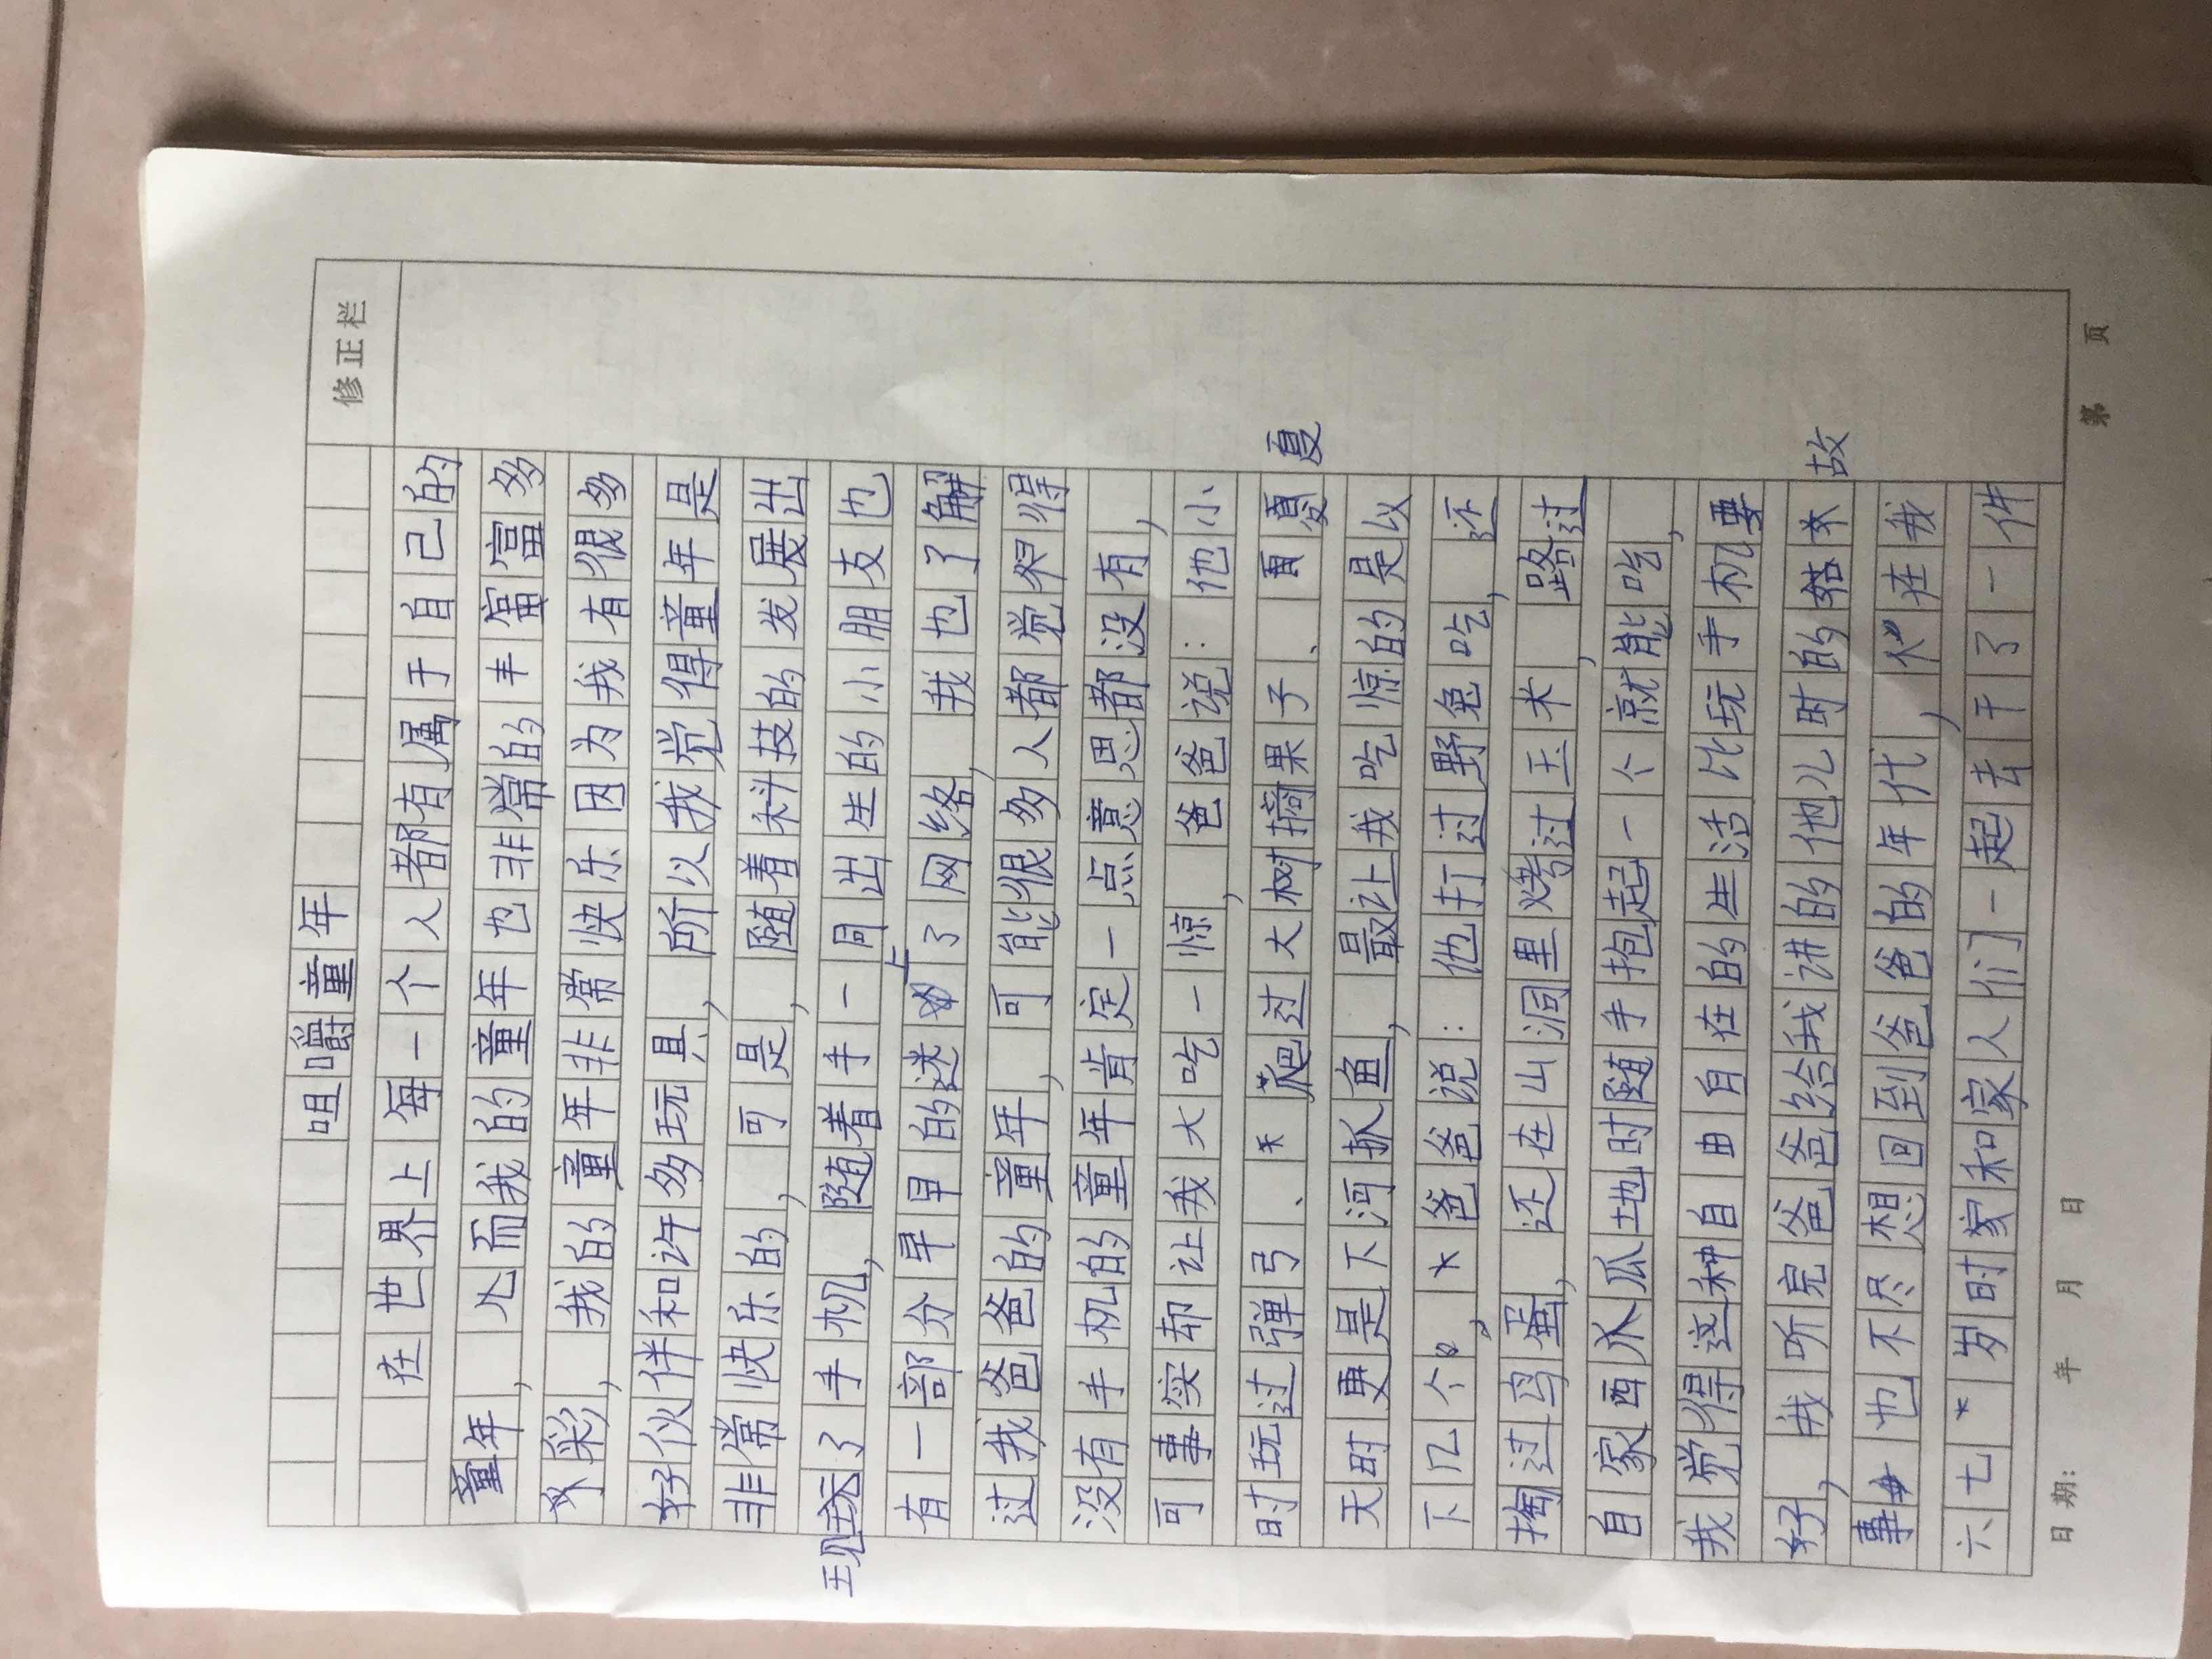 修正栏
咀嚼童年
在世界上每一个人都有属于自己的
童年，而我的童年也非常的丰富富多
彩，我的童年非常快乐因为我有很多
好伙伴和许多玩具，所以我觉得童年是
非常快乐的，可是，随着科技的发展出
现玩了手机，随着手一同出生的小朋友也
有一部分早早的迷上了网络，我也了解
过我爸爸的童年，可能很多人都觉得
没有手机的童年肯定一点意思都没有，
可事实却让我大吃一惊，爸爸说：他小
时玩过弹弓、爬过大树摘果子、夏
天时更是下河抓鱼，最让我吃惊的是以
下几个，爸爸说：他打过野兔吃，还
掏过鸟蛋，还在山洞里烤过玉米，路过
自家西瓜地时随手抱起一个就能吃，
我觉得这种自由自在的生活比玩手机要
好，我听完爸爸给我讲的他儿时的故
事也不尽想回到爸爸的年代，在我
六七岁时家和家人们一起去干了一件
日期： 年 月 日 第 页